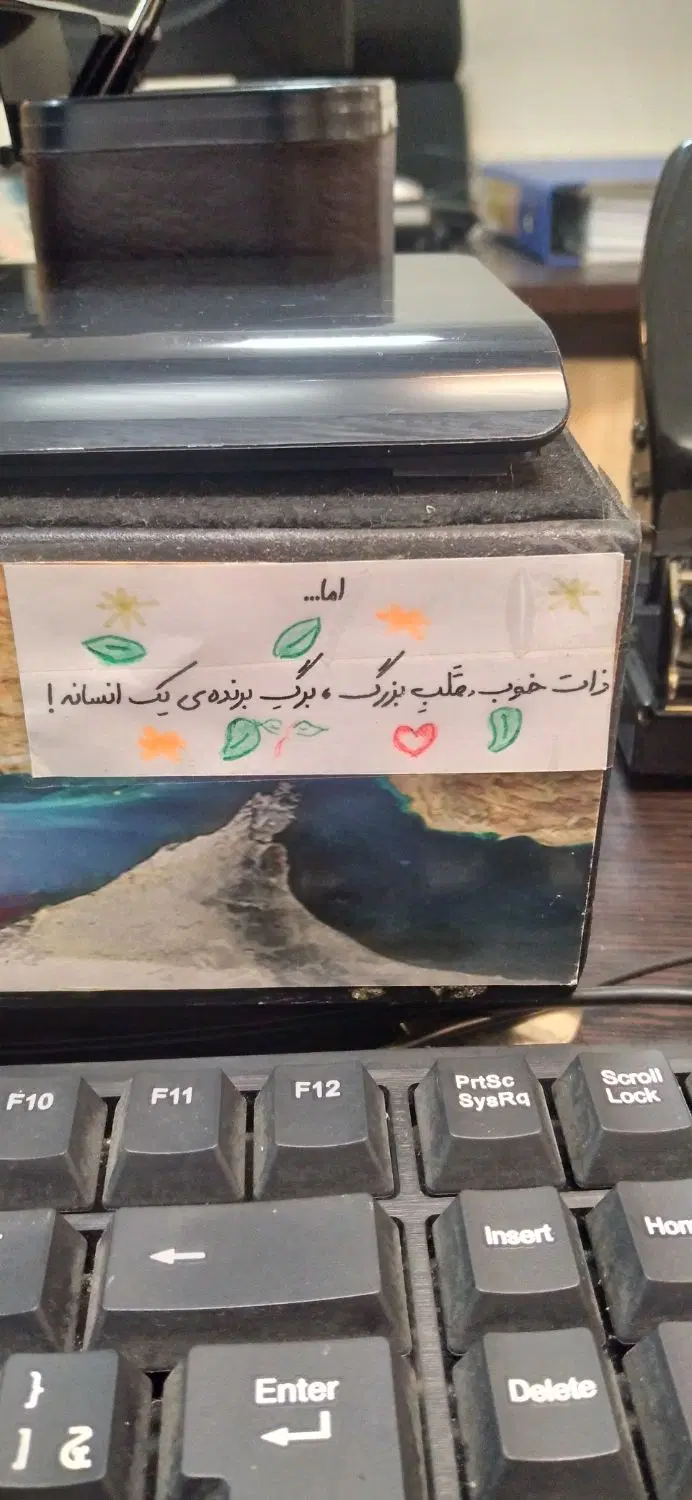 اما...
ذات خوب، قَلبِ بزرگ، برگِ برنده‌ی یک انسانه!
F10 F11 F12 PrtSc SysRq Scroll Lock
← Insert
} Enter Delete
] چ